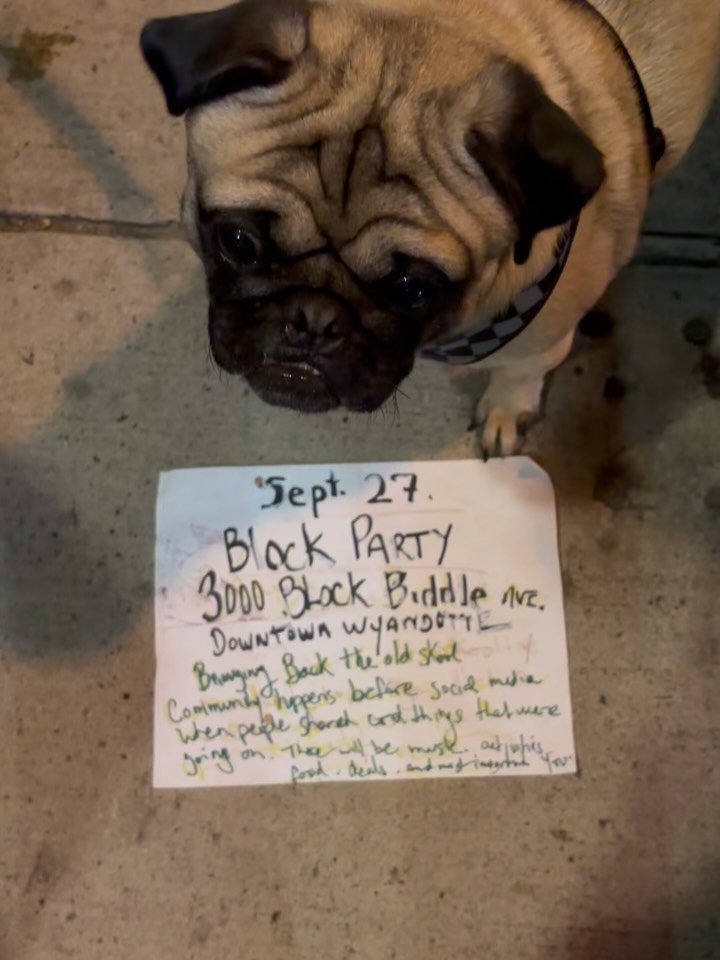 Sept. 27.
Block Party
3000 Block Biddle Ave.
Downtown Wyandotte
Bringing Back the old skool
Community happens before social media
when people shared cool things that were
going on. There will be music. activities,
food. deals. and most important You!